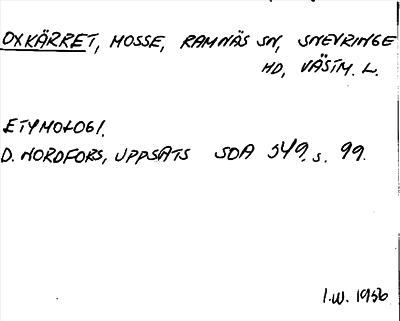 OXKÄRRET, MOSSE, RAMNÄS SN, SNEVRINGE
HD, VÄSTM. L.
ETYMOLOGI.
D. NORDFORS, UPPSATS SOA 549. s. 99.
I.W. 1956